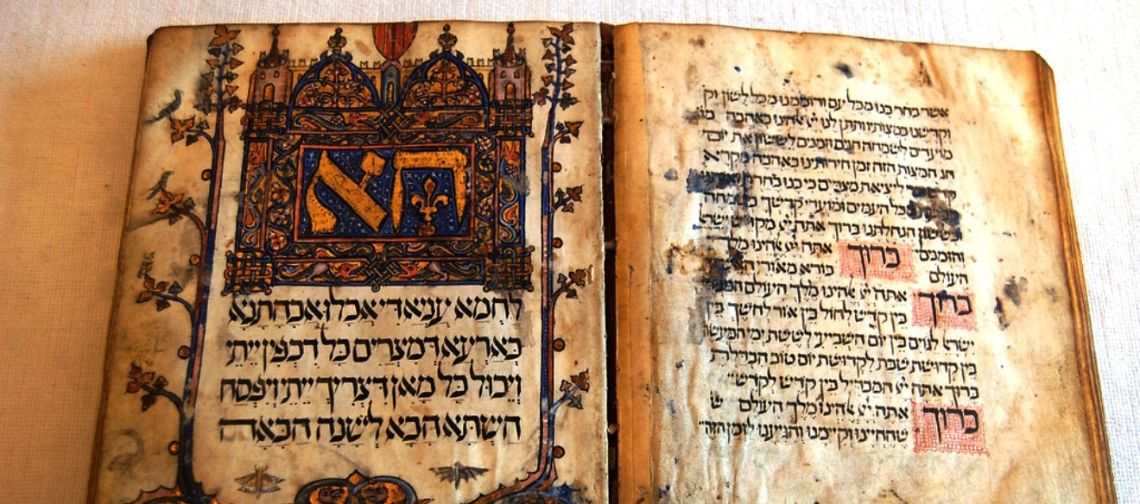 אשר בחר בנו מכל עם ורוממנו מכל לשון וק
וקדשנו במצותיו ותתן לנו יי אלהינו באהבה מו
מועדים לשמחה חגים וזמנים לששון את יום
חג המצות הזה זמן חירותינו באהבה מקרא
ליציאת מצרים כי בנו בחרת
מכל העמים ומועדי קדשיך בשמחה
ובששון הנחלתנו ברוך אתה יי מקדש ישרא
והזמנים ברוך אתה יי אלהינו מלך
העולם בורא מאורי
ברוך אתה יי אלהינו מלך העולם
בין קדש לחול בין אור לחשך בין
ישרא לגוים בין יום השביעי לששת ימי המעשה
בין קדושת שבת לקדושת יום טוב הבדלת
ברוך אתה יי המבדיל בין קדש לקדש
ברוך אתה יי אלהינו מלך העולם ש
שהחיינו וקיימנו והגיענו לזמן הזה
הא
לחמא עניא די אכלו אבהתנא
בארעא דמצרים כל דכפין ייתי
ויכול כל מאן דצריך ייתי ויפסח
השתא הכא לשנה הבאה